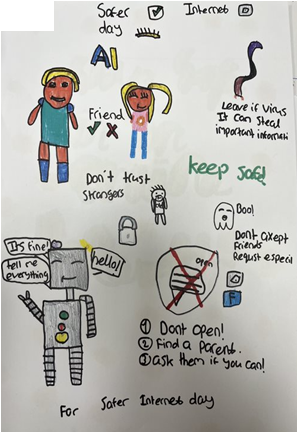 Safer Internet
day
AI
Friend
Leave if Virus
It can Steal
important informati
Don't trust
strangers
keep safe!
Boo!
Dont axept
Friends
Requst especial
It's fine!
tell me
everything
hello!
open
F
1 Dont open!
2 Find a Parent.
3 ask them if you can!
For Safer Internet day